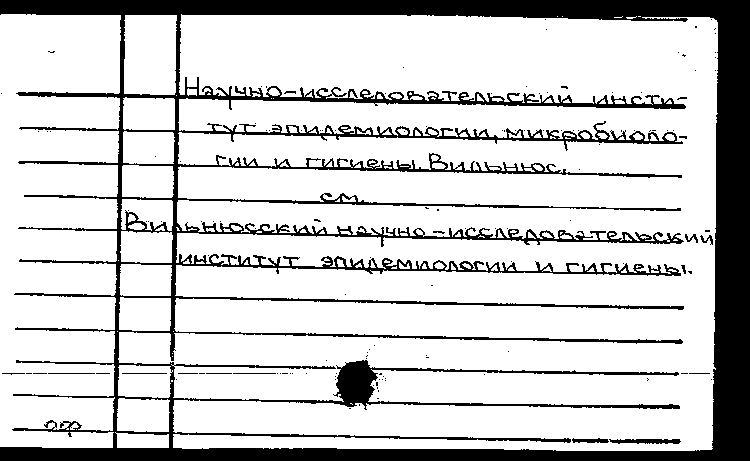 Научно-исследовательский инсти-
тут эпидемиологии, микробиоло-
гии и гигиены. Вильнюс.
см.
Вильнюсский научно-исследовательский
институт эпидемиологии и гигиены.